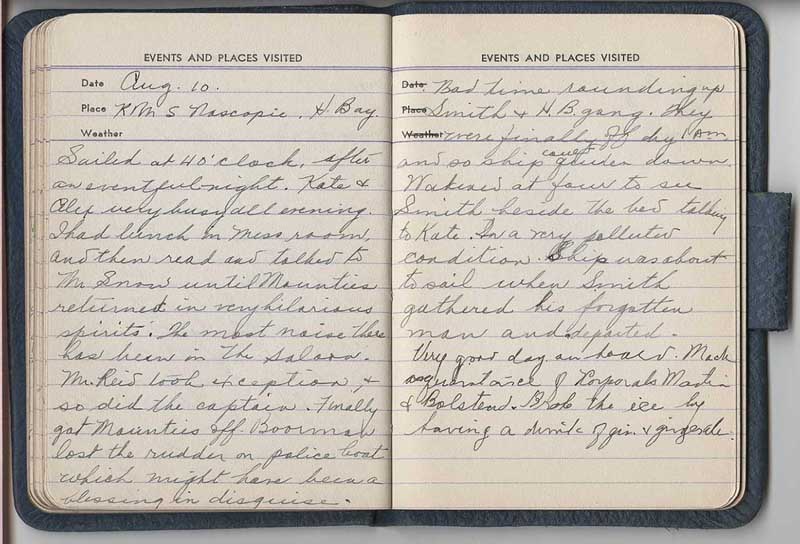 EVENTS AND PLACES VISITED
Date Aug. 10.
Place RMS Nascopie, H. Bay.
Weather
Sailed at 4 o'clock, after
an eventful night. Kate &
Alex very busy all evening.
I had lunch in Mess room,
and then read and talked to
Mr. Snow until Mounties
returned in very hilarious
spirits. The most noise there
has been in the Saloon.
Mr. Reid took exception, &
so did the captain. Finally
got Mounties off. Boorman
lost the rudder on police boat
which might have been a
blessing in disguise.
EVENTS AND PLACES VISITED
Date Bad time rounding up
Place Smith & H.B. gang. They
Weather were finally off by 1 A.M.
and so ship quieten down.
Wakened at four to see
Smith beside the bed talking
to Kate. In a very polluted
condition. Ship was about
to sail when Smith
gathered his forgotten
man and departed.
Very good day on board. Made
acquaintance of Corporals Martin
& Bolstead. Broke the ice by
having a drink of gin & gingerale.